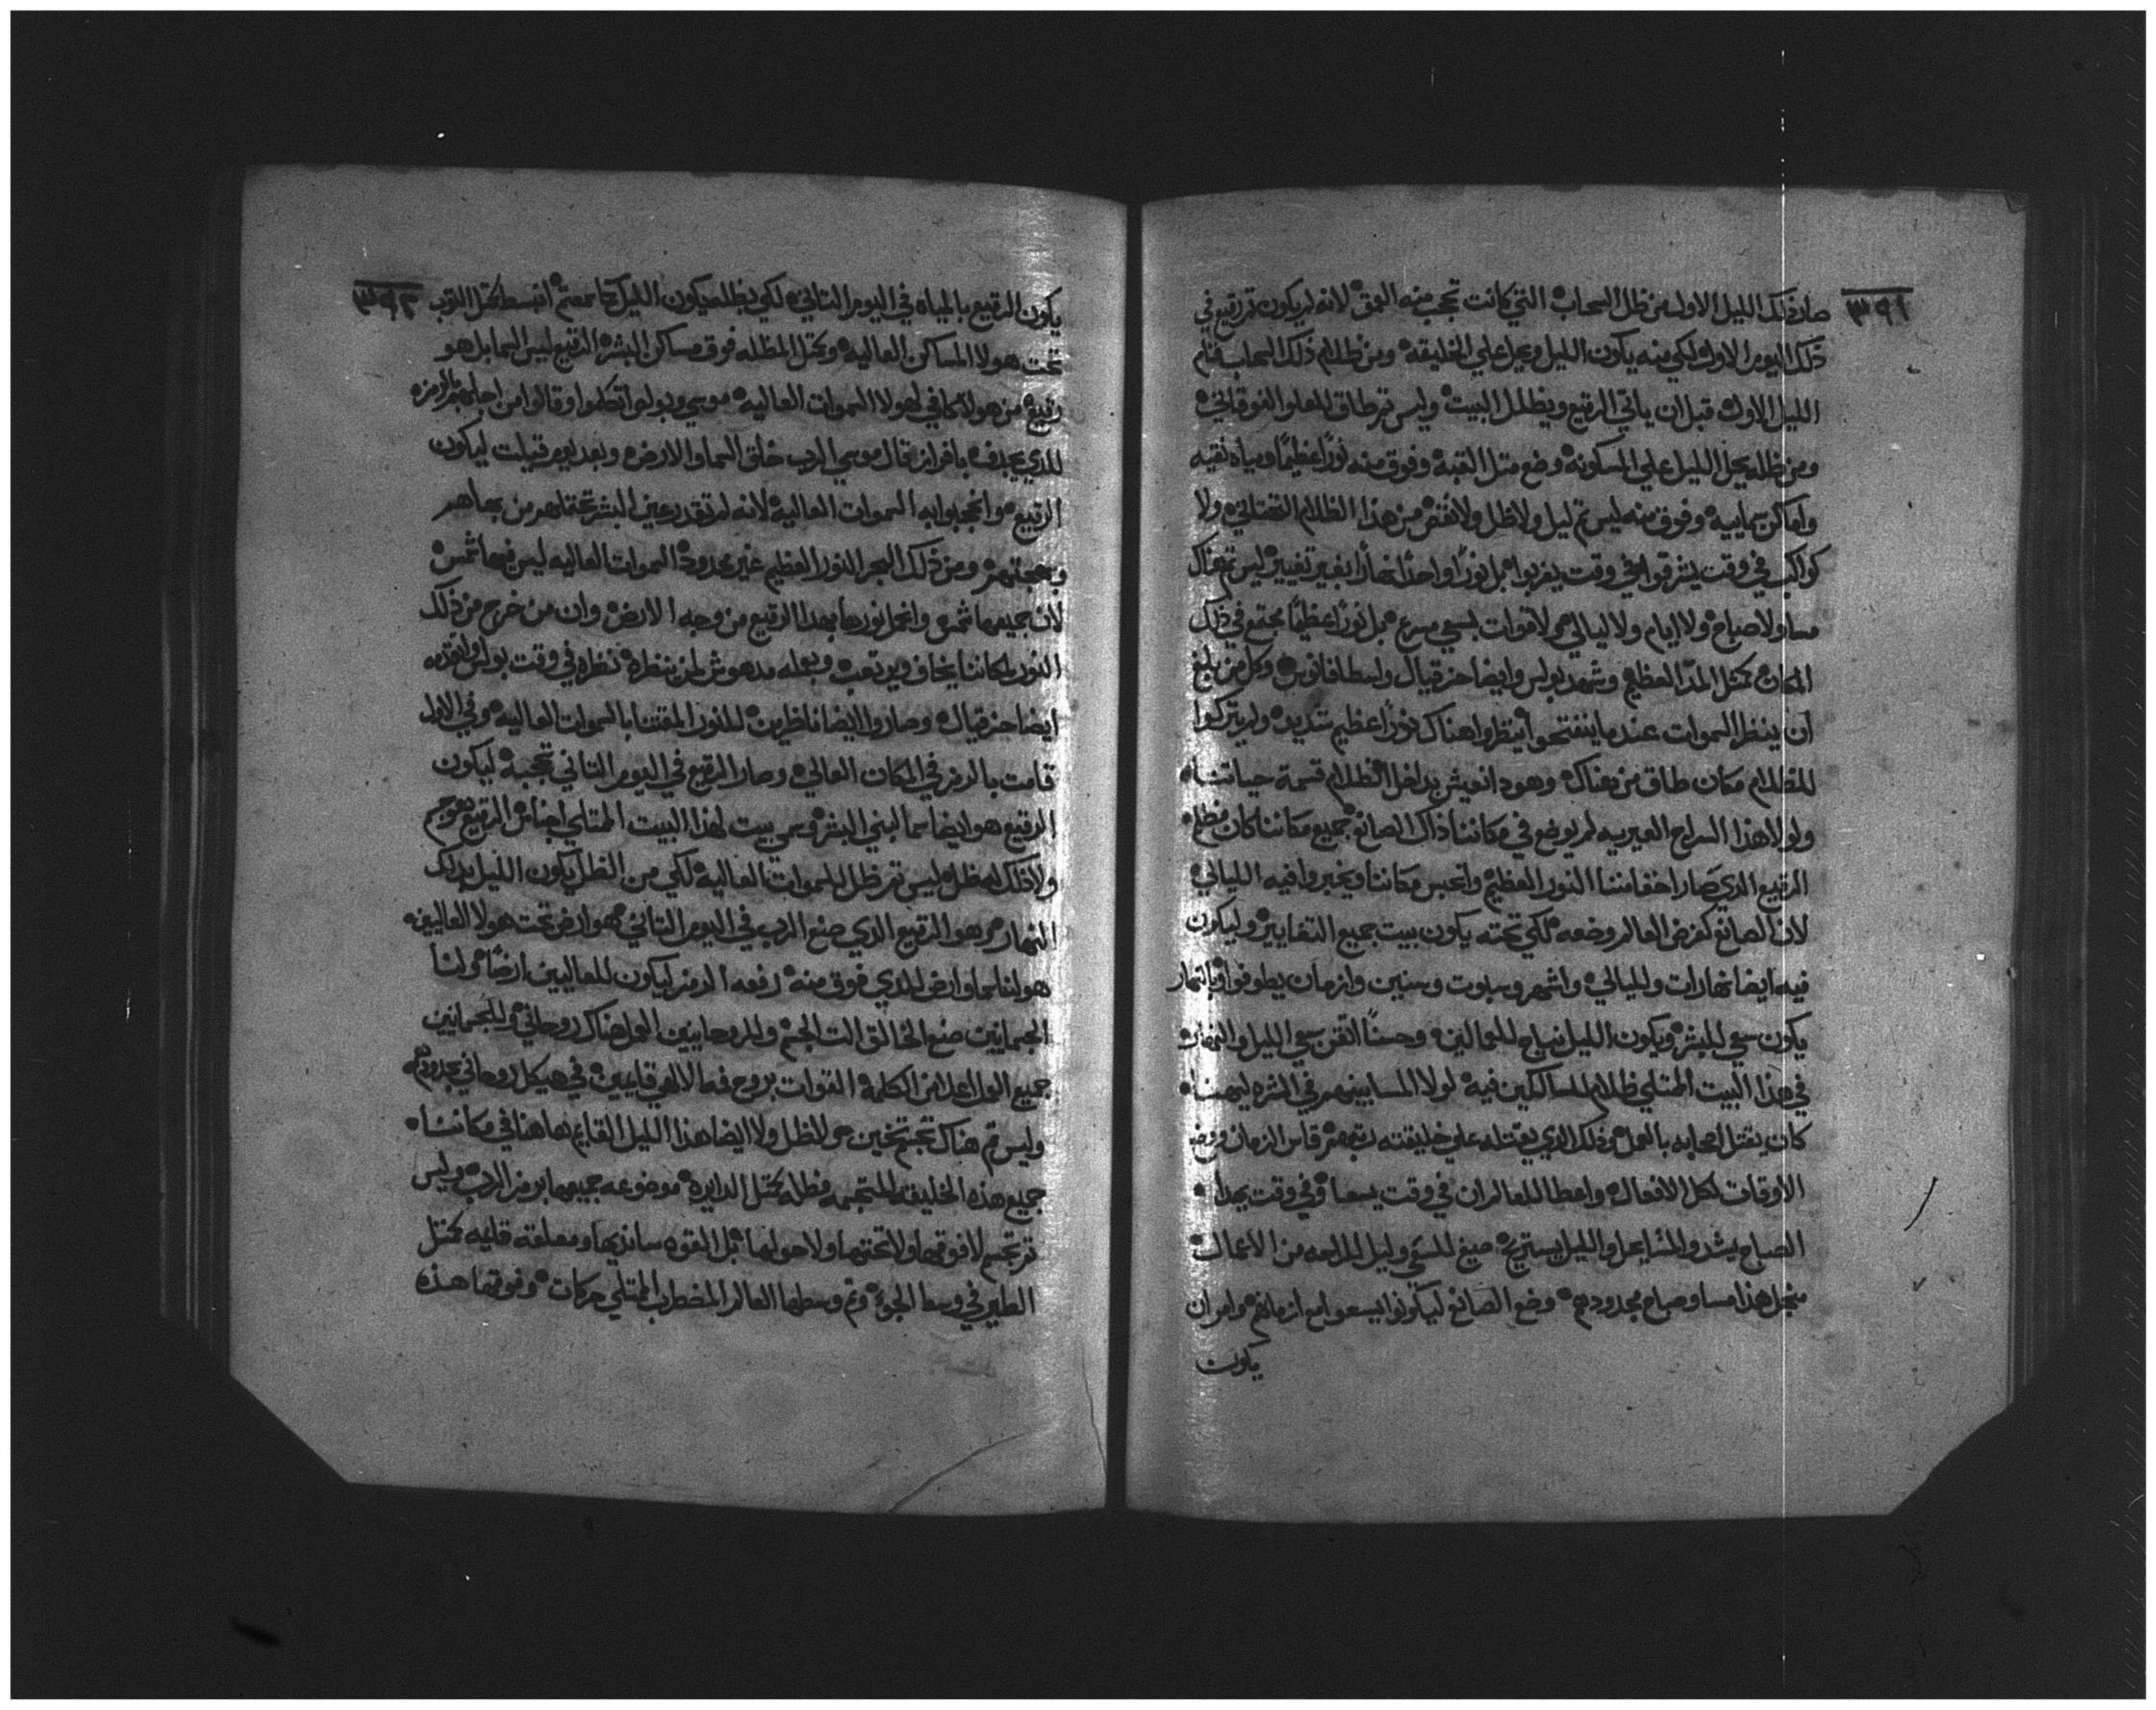 ٣٩١
صار ذلك الليل الاول من ظل السحاب التي كانت تحجب منه العمق لانه لم يكون تم رقيع في
ذلك اليوم الاول لكي منه يكون الليل ويحل علي الخليقه ومن ظلام ذلك السحاب قام
الليل الاول قبل ان ياتي الرقيع ويظلل البيت وليس تم طاق للعلو الفوقاني
ومن ظله يحل الليل علي المسكونه وضع متل القبه وفوق منه نورًا عظيمًا ومياه نقيه
واماكن سماييه وفوق منه ليس تم ليل ولا ظل ولا نقص من هذا الظلام التحتاني ولا
كواكب في وقت يشرقوا وفي وقت يغربوا بل نورًا واحدًا نهارًا بغير تغيير ليس تم هناك
مسا ولا صباح ولا ايام ولا ليالي ولا قوات بسعي مسرع بل نورًا عظيمًا مجتمع في ذلك
المكان كمتل المدّ العظيم وشهد بولس وايضا حزقيال واسطافانوس وكل من بلغ
ان ينظر السموات عندما ينفتحوا انتظروا هناك نورًا عظيم شديد ولم يتركوا
للظلام مكان طاق من هناك وهودا نعيش بداخل الظلام قسمة حياتنا
ولولا هذا السراج لم يوضع في مكاننا ذاك الصانع جميع مكاننا كان مظلم
الرقيع الدي صار احقامننا النور العظيم وانحبس مكاننا ويخبروا فيه الليالي
لان الصانع كغرض العالم وضعه لكي تحته يكون بيت جميع التغايير وليكون
فيه ايضا نهارات والليالي واشهر وسبوت وسنين وازمان يطوفوا وبالنهار
يكون سعي للبشر ويكون الليل نياح للعمالين وحسنًا اتقن سعي الليل والنهار
في هذا البيت الممتلي ظلام للساكنين فيه لولا المسا بينهم في الشره ليهنا
كان يقتل اصحابه بالعمل وذلك الدي يقتله علي خليقته بتعبهم قاس الزمان ووضع
الاوقات لكل الافعال واعطا للعالم ان في وقت يسعا وفي وقت يهدا
الصباح يشد والمسا يحل والليل يستريح صيغ للسعي وليل للراحه من الاعمال
منجل هذا مسا وصباح محدودهم وضع الصانع ليكونوا يسعوا مع ازمانهم وامر ان
يكون
٣٩٢
يكون الرقيع بالمياه في اليوم التاني لكي بظله يكون الليل انبسط كمتل التوب
تحت هولا المساكن العاليه وكمتل المظله فوق مساكن البشر الرقيع ليس السما بل هو
رقيع من هولا كافي لهولا السموات العاليه موسي وبولس اتكلموا وقالوا من اجله
للدي يجدف بافراز قال موسي الرب خلق السما والارض وبعد يوم قيلت ليكون
الرقيع وانحجبوا به السموات العاليه لانه لم تقدر عين البشر من بهاهم
وبهجتهم ومن ذلك البحر النور العظيم غير محدود السموات العاليه ليس فيها شمس
لان جميعها شمس وانحل نورها بهدا الرقيع من وجه الارض وان من خرج من ذلك
النور لمكاننا يخاف ويرتعب وبعله مدهوش لمن ينظره نظره في وقت بولس
ايضا حزقيال وصاروا ايضا ناظرين للنور المقتنا بالسموات العاليه وفي الاول
قامت بالرمز في المكان العالي وصار الرقيع في اليوم التاني تحجبه ليكون
الرقيع هو ايضا سما لبني البشر وسمي بيت لهذا البيت الممتلي اجناس الرقيع هو جسم
ولاذلك له ظل ليس تم ظل للسموات العاليه لكي من الظل يكون الليل يدرك
النهار وهو الرقيع الدي صنع الرب في اليوم التاني هو ارض تحت هولا العاليين
هو لنا سما وارض للدي فوق منه رفعه الرمز ليكون للعاليين ارضًا ولنا
الجسمانيين صنع الخالق الت الجسم وللروحانيين العمل هناك روحاني وللجسمانيين
جميع الوال اعدا من الكلمه القوات بروح فمه الالهي قايمين في هيكل روحاني بحدودهم
وليس تم هناك تجسم تخين ولا ظل ولا ايضا هذا الليل القايم هاهنا في مكاننا
جميع هذه الخليقه المتجسمه مظله كمتل الدايره موضوعه جميعها برمز الرب وليس
تم تجسم لا فوقها ولا تحتها ولا حولها بل القوه ساندتها ومعلقه قليه كمتل
الطير في وسط الجو وتم وسطها العالم المضطرب الممتلي حركات وفوقها هذه